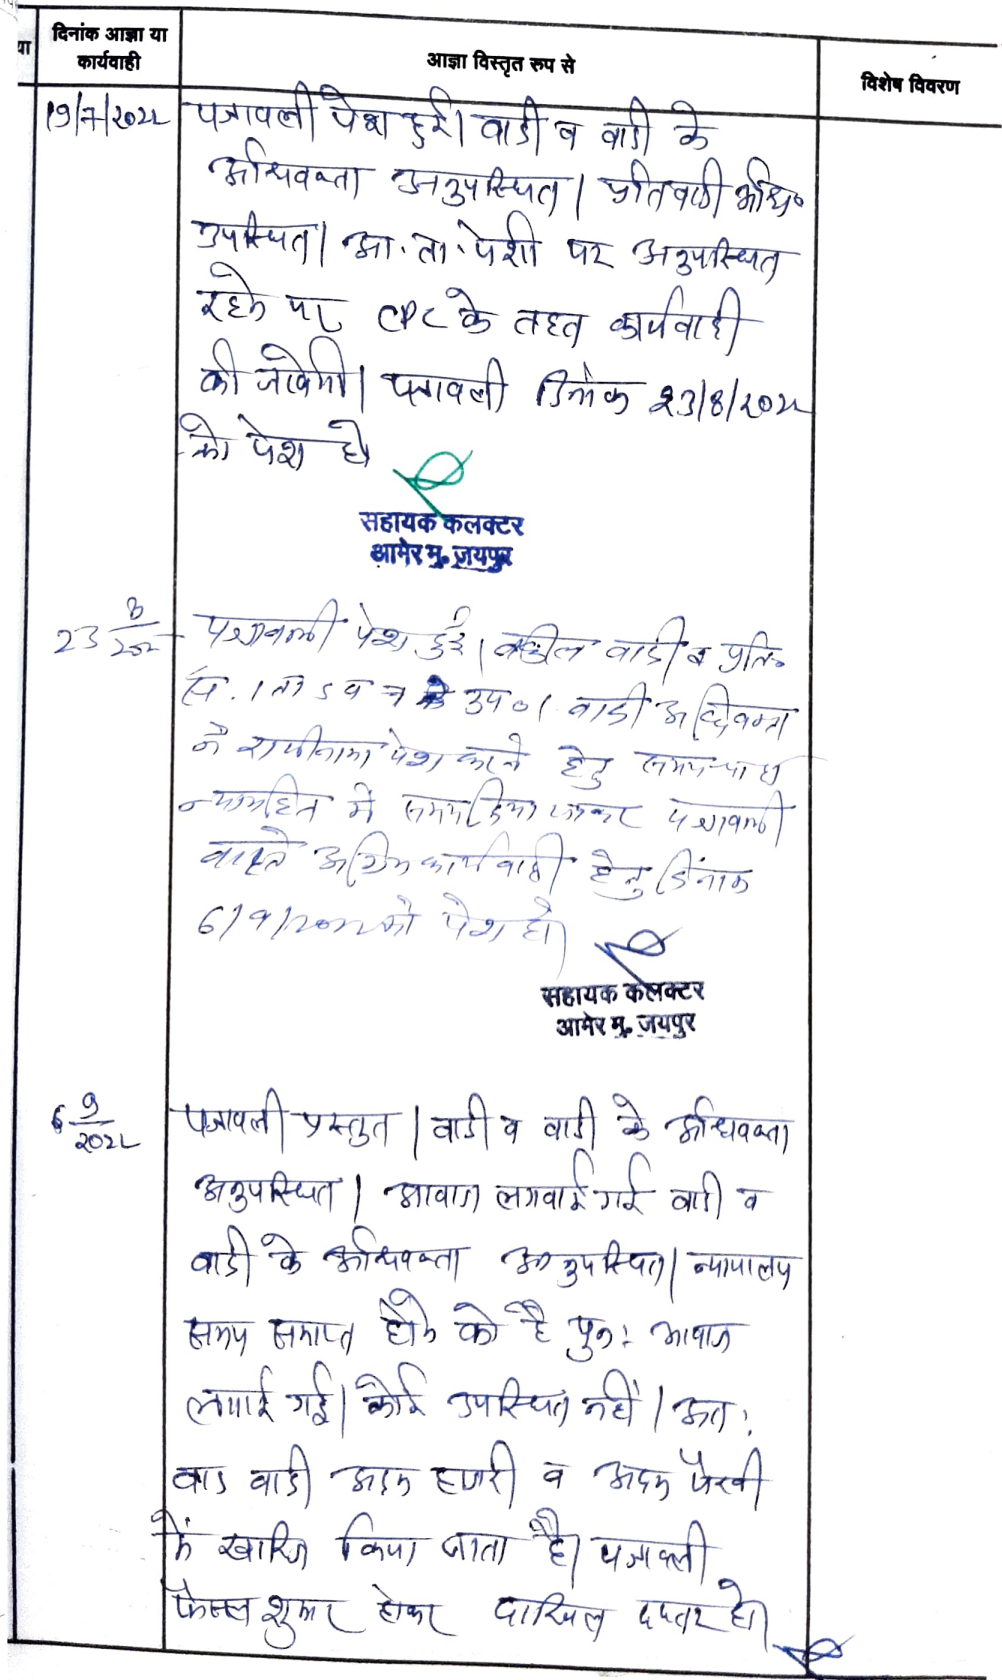 या
दिनांक आज्ञा या
कार्यवाही
आज्ञा विस्तृत रूप से
विशेष विवरण
19/7/2022
पत्रावली पेश हुई। वादी व वादी के
अधिवक्ता अनुपस्थित। प्रतिवादी अधि॰
उपस्थित। आ. ता. पेशी पर अनुपस्थित
रहने पर CPC के तहत कार्यवाही
की जावेगी। पत्रावली दिनांक 23/8/2022
को पेश हो
सहायक कलक्टर
आमेर मु. जयपुर
23 8/202
पत्रावली पेश हुई। वकील वादी व प्रति॰
सं. 1 ता 5 व 7 के उप०। वादी अधिवक्ता
ने राजीनामा पेश करने हेतु समय चाहा
न्यायहित में समय दिया जाकर पत्रावली
वास्ते अग्रिम कार्यवाही हेतु दिनांक
6/9/2022 को पेश हो।
सहायक कलक्टर
आमेर मु. जयपुर
6 9/2022
पत्रावली प्रस्तुत। वादी व वादी के अधिवक्ता
अनुपस्थित। आवाज लगवाई गई वादी व
वादी के अधिवक्ता अनुपस्थित। न्यायालय
समय समाप्त होने को है पुनः आवाज
लगाई गई। कोई उपस्थित नहीं। अतः
वाद वादी अदम हाजरी व अदम पैरवी
में खारिज किया जाता है। पत्रावली
फैसल शुमार होकर दाखिल दफ्तर हो।